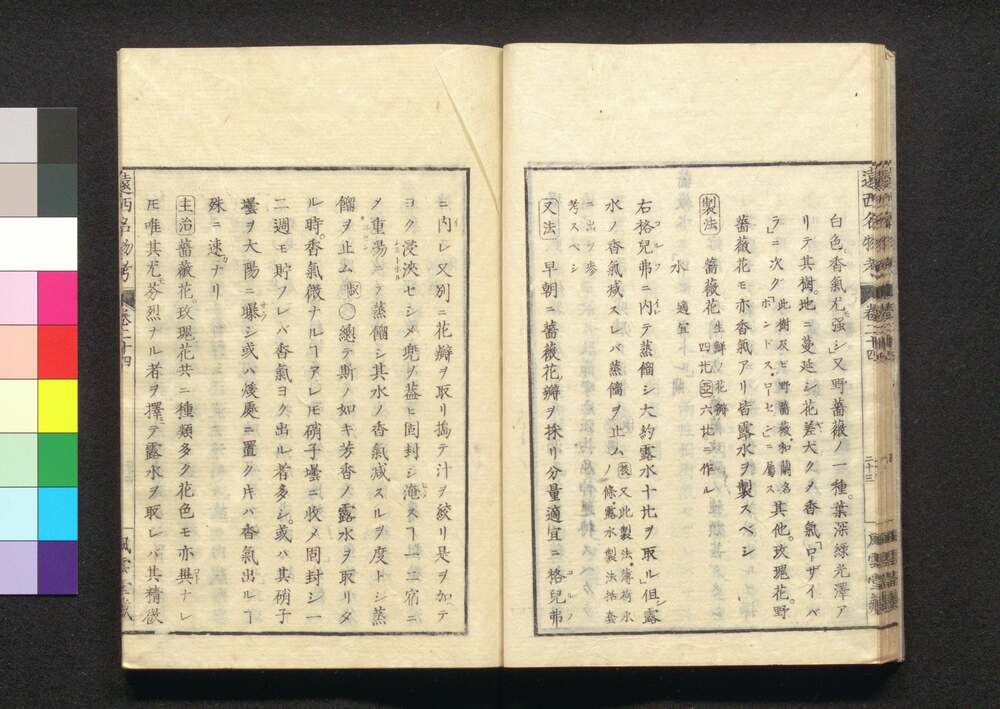 白色香氣尤强シ又野薔薇ノ一種葉深緑光澤ア
リテ其樹地ニ蔓延シ花差大クノ香氣「ロザイバ
ラ」ニ次グ此樹及ビ野薔薇和蘭名「ホンドス・ローセン」ニ屬ス其他玫瑰花野
薔薇花モ亦香氣アリ皆露水ヲ製スベシ
製法 薔薇花生鮮ノ花瓣 四㐂 六㐂ニ作ル
水 適宜
右格兒弗ニ内テ蒸餾シ大約露水十㐂ヲ取ル但露
水ノ香氣减スレバ蒸餾ヲ止ム又此製法薄荷水ノ條露水製法括套
ニ出ヅ参
考スベシ
又法 早朝ニ薔薇花瓣ヲ採リ分量適宜ニ格兒弗
遠西名物考 卷二十四 二十三 風雲堂藏
ニ内レ又別ニ花瓣ヲ取リ搗テ汁ヲ絞リ是ヲ加テ
ヨク浸浹セシメ兜ヲ蓋ヒ固封シ淹スヿ一二宿ニ
〆重湯ニテ蒸餾シ其水ノ香氣减スルヲ度トシ蒸
餾ヲ止ム 總テ斯ノ如キ芳香ノ露水ヲ取リタ
ル時香氣微ナルヿアレ𪜈硝子壜ニ收メ固封シ一
二週モ貯フレバ香氣ヨク出ル者多シ或ハ其硝子
壜ヲ大陽ニ曝シ或ハ煖處ニ置ク𪜈ハ香氣出ルヿ
殊ニ速ナリ
主治 薔薇花玫瑰花共ニ種類多ク花色モ亦異ナレ
𪜈唯其尤芬烈ナル者ヲ擇テ露水ヲ取レバ其精微
遠西名物考 卷二十四 風雲堂藏